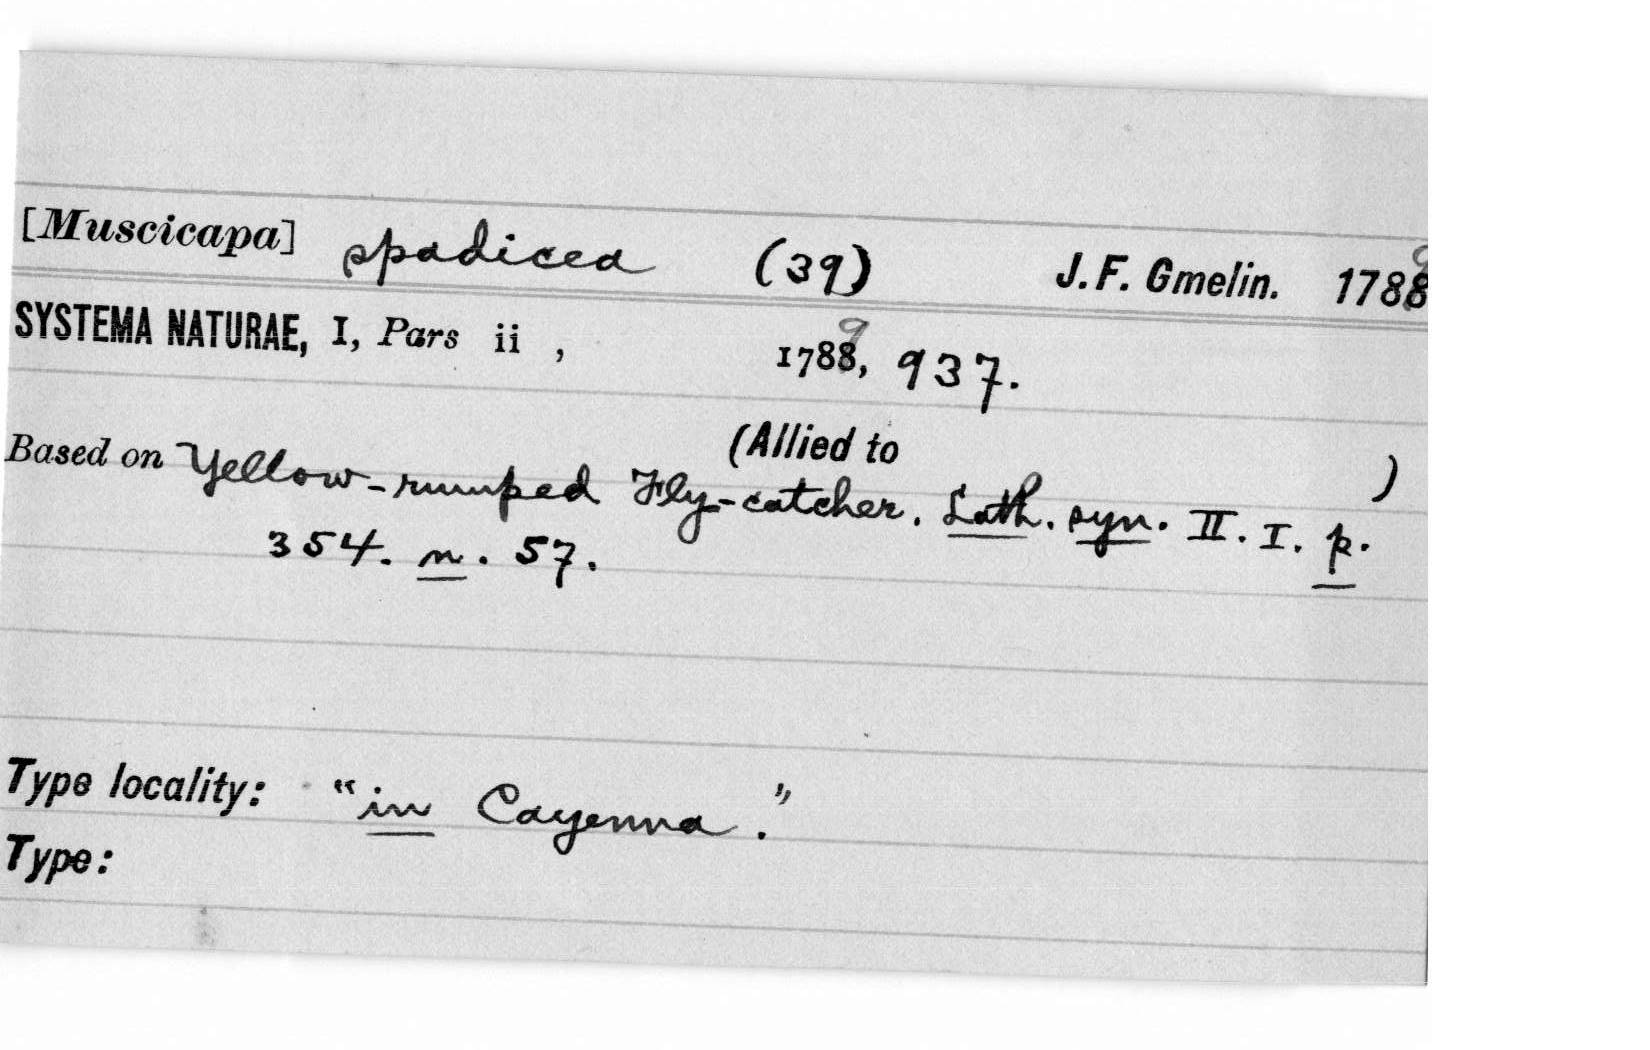 [Muscicapa] spadicea (39) J. F. Gmelin. 1788 9
SYSTEMA NATURAE, I, Pars ii , 1788, 9 937.
(Allied to )
Based on Yellow-rumped Fly-catcher. Lath. syn. II. I. p.
354. n. 57.
Type locality: "in Cayenna."
Type: